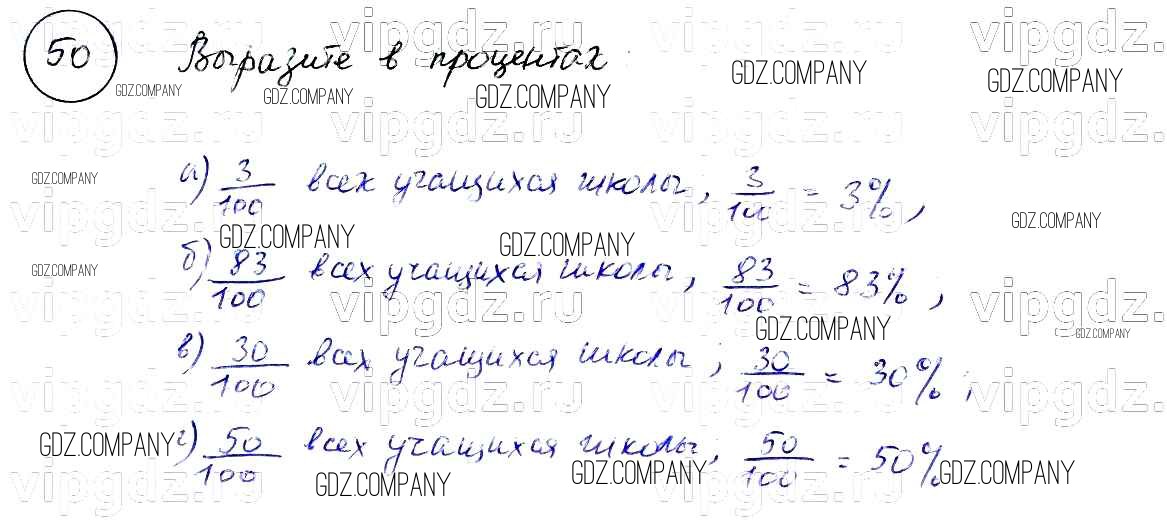 50 Выразите в процентах
а) 3/100 всех учащихся школы; 3/100 = 3%,
б) 83/100 всех учащихся школы, 83/100 = 83%,
в) 30/100 всех учащихся школы; 30/100 = 30%;
г) 50/100 всех учащихся школы; 50/100 = 50%
vipgdz.ru
GDZ.COMPANY